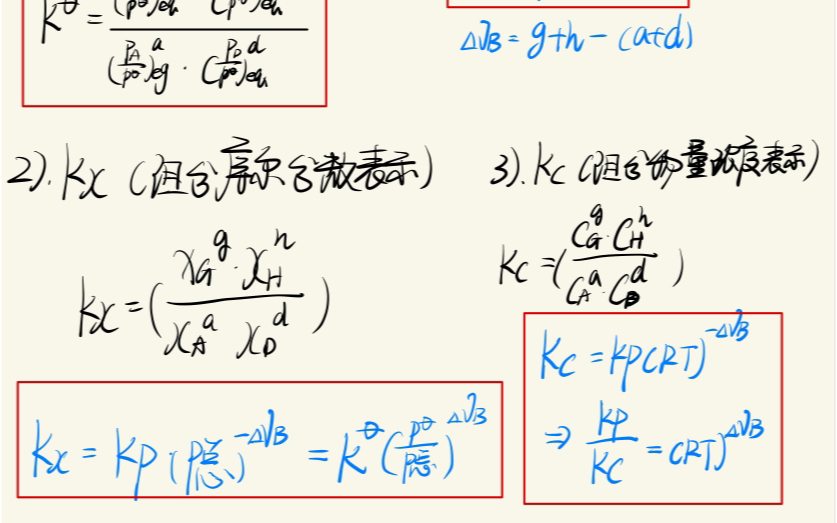 K^θ = ((P_G/P^θ)^g_eq · (P_H/P^θ)^h_eq) / ((P_A/P^θ)^a_eq · (P_D/P^θ)^d_eq)
ΔνB = g+h-(a+d)
2). Kx (组分摩尔分数表示)
Kx = (x_G^g · x_H^h / x_A^a x_D^d)
Kx = Kp(P总)^-ΔνB = K^θ(P^θ/P总)^ΔνB
3). Kc (组分物量浓度表示)
Kc = (C_G^g · C_H^h / C_A^a · C_D^d)
Kc = Kp(RT)^-ΔνB
⇒ Kp/Kc = (RT)^ΔνB